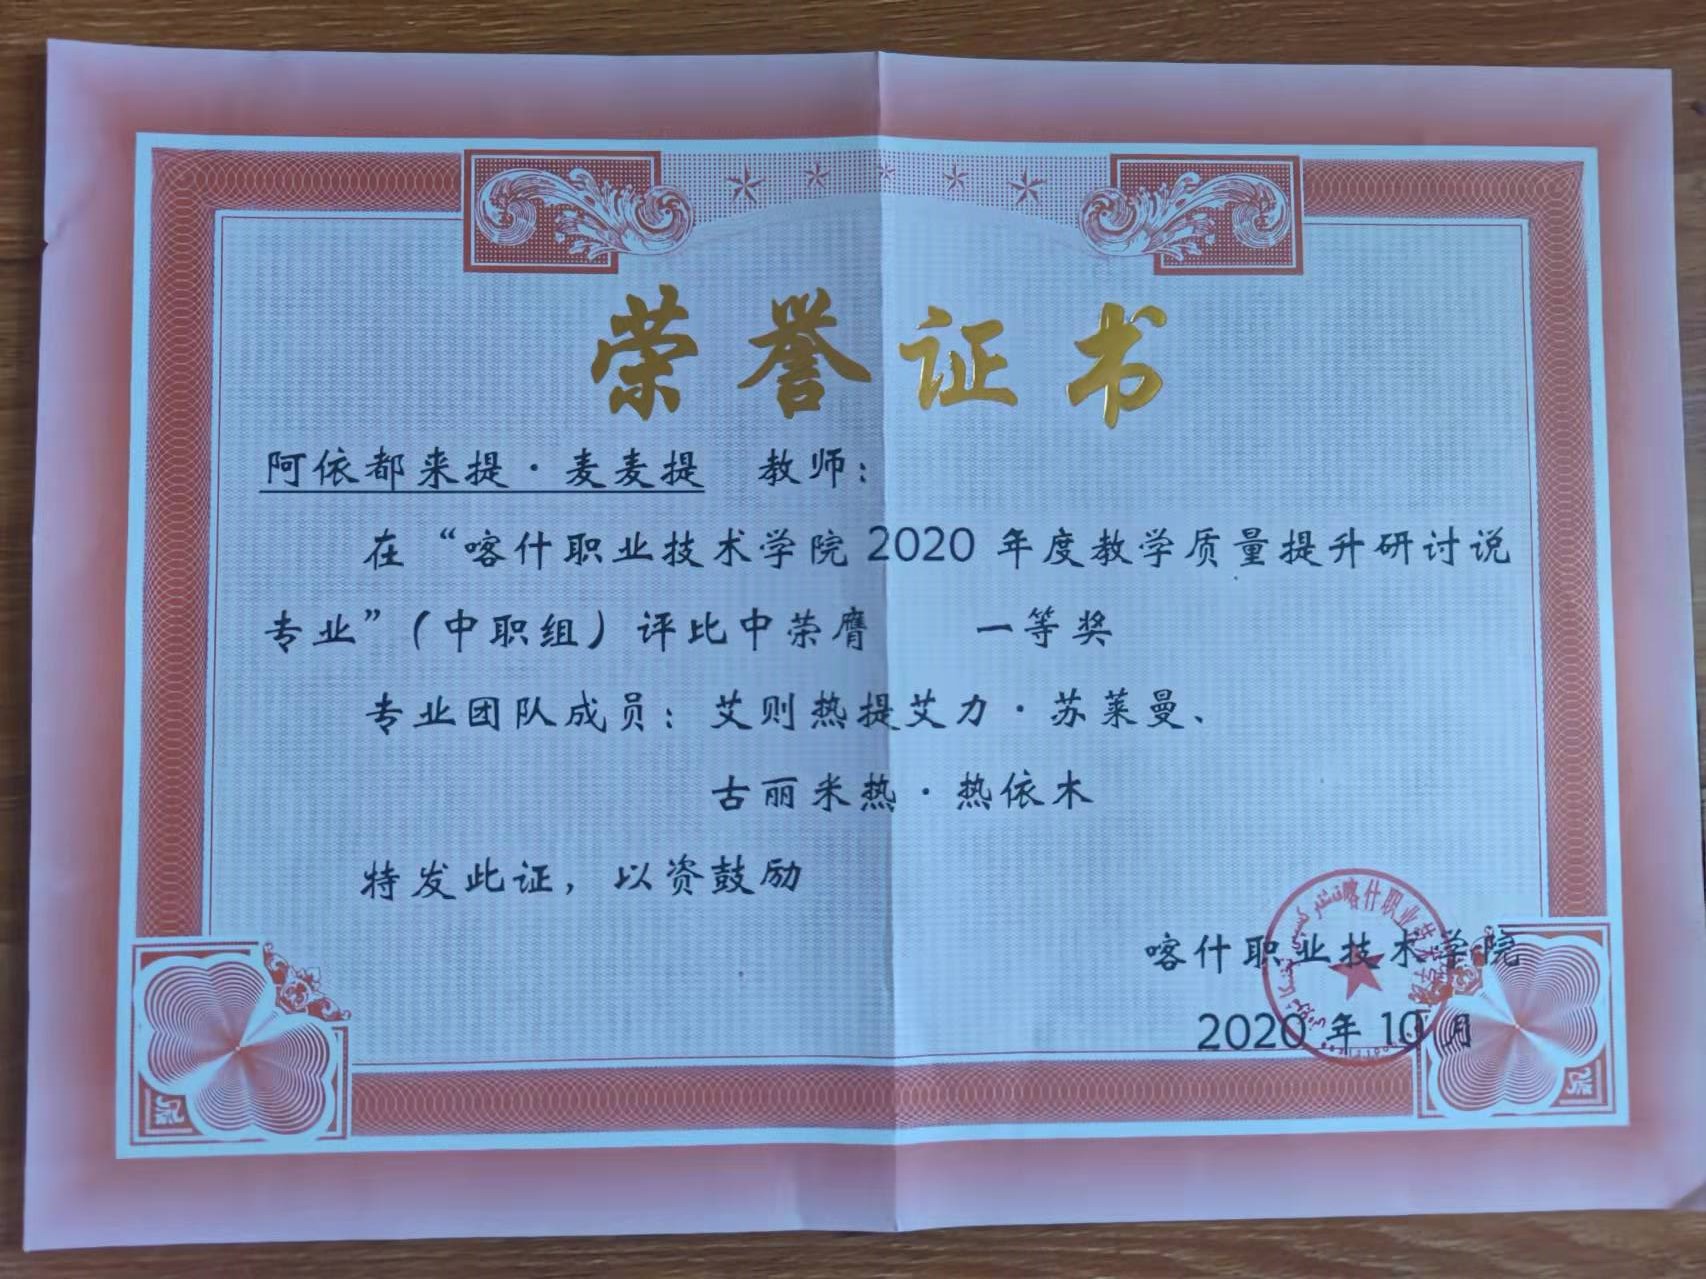 荣誉证书
阿依都来提·麦麦提 教师：
在“喀什职业技术学院2020年度教学质量提升研讨说
专业”（中职组）评比中荣膺 一等奖
专业团队成员：艾则热提艾力·苏莱曼、
古丽米热·热依木
特发此证，以资鼓励
喀什职业技术学院
2020年10月
喀什职业技术学院